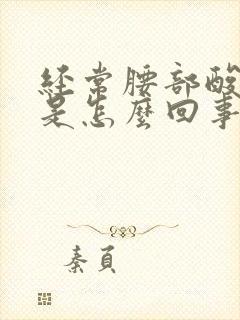 经常腰部酸
是怎麼回事
秦員